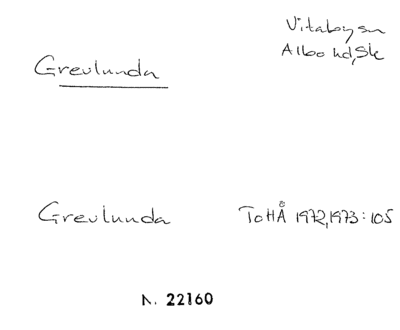 Vitaby sn
Albo hd, Sk
Grevlunda
Grevlunda ToHÅ 1972, 1973: 105
N. 22160